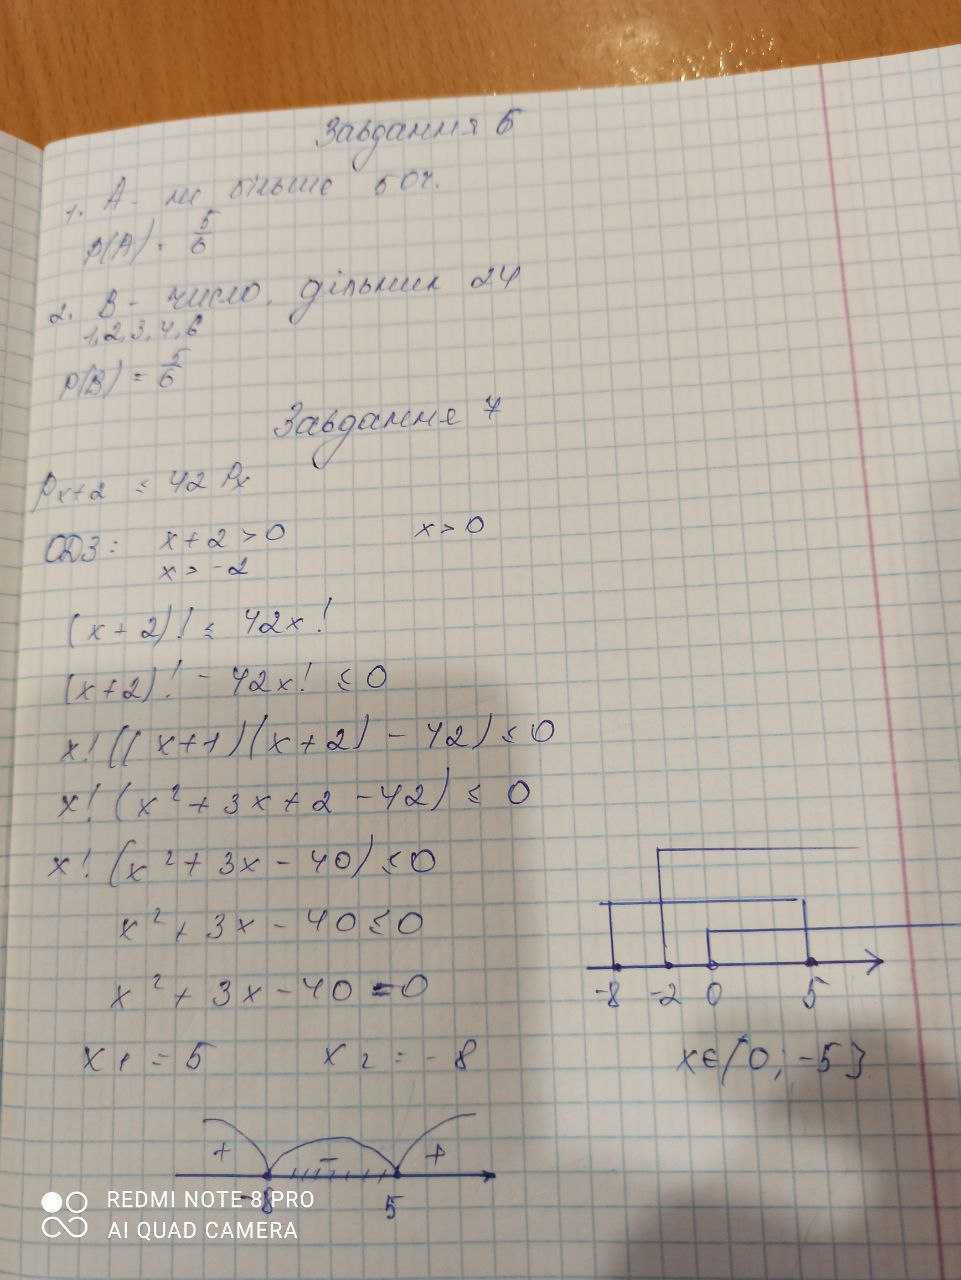 Завдання 6
1. А - не більше 5 оч.
P(A) = 5/6
2. В - число, дільник 24
1, 2, 3, 4, 6
P(B) = 5/6
Завдання 7
Px+2 ≤ 42 Px
ОДЗ: x + 2 > 0 x > 0
x > -2
(x + 2)! ≤ 42x!
(x+2)! - 42x! ≤ 0
x! ((x+1)(x+2) - 42) ≤ 0
x! (x² + 3x + 2 - 42) ≤ 0
x! (x² + 3x - 40) ≤ 0
x² + 3x - 40 ≤ 0
x² + 3x - 40 = 0
-8 -2 0 5
x1 = 5 x2 = -8
x∈(0; -5}
+ - +
-8 5
REDMI NOTE 8 PRO
AI QUAD CAMERA